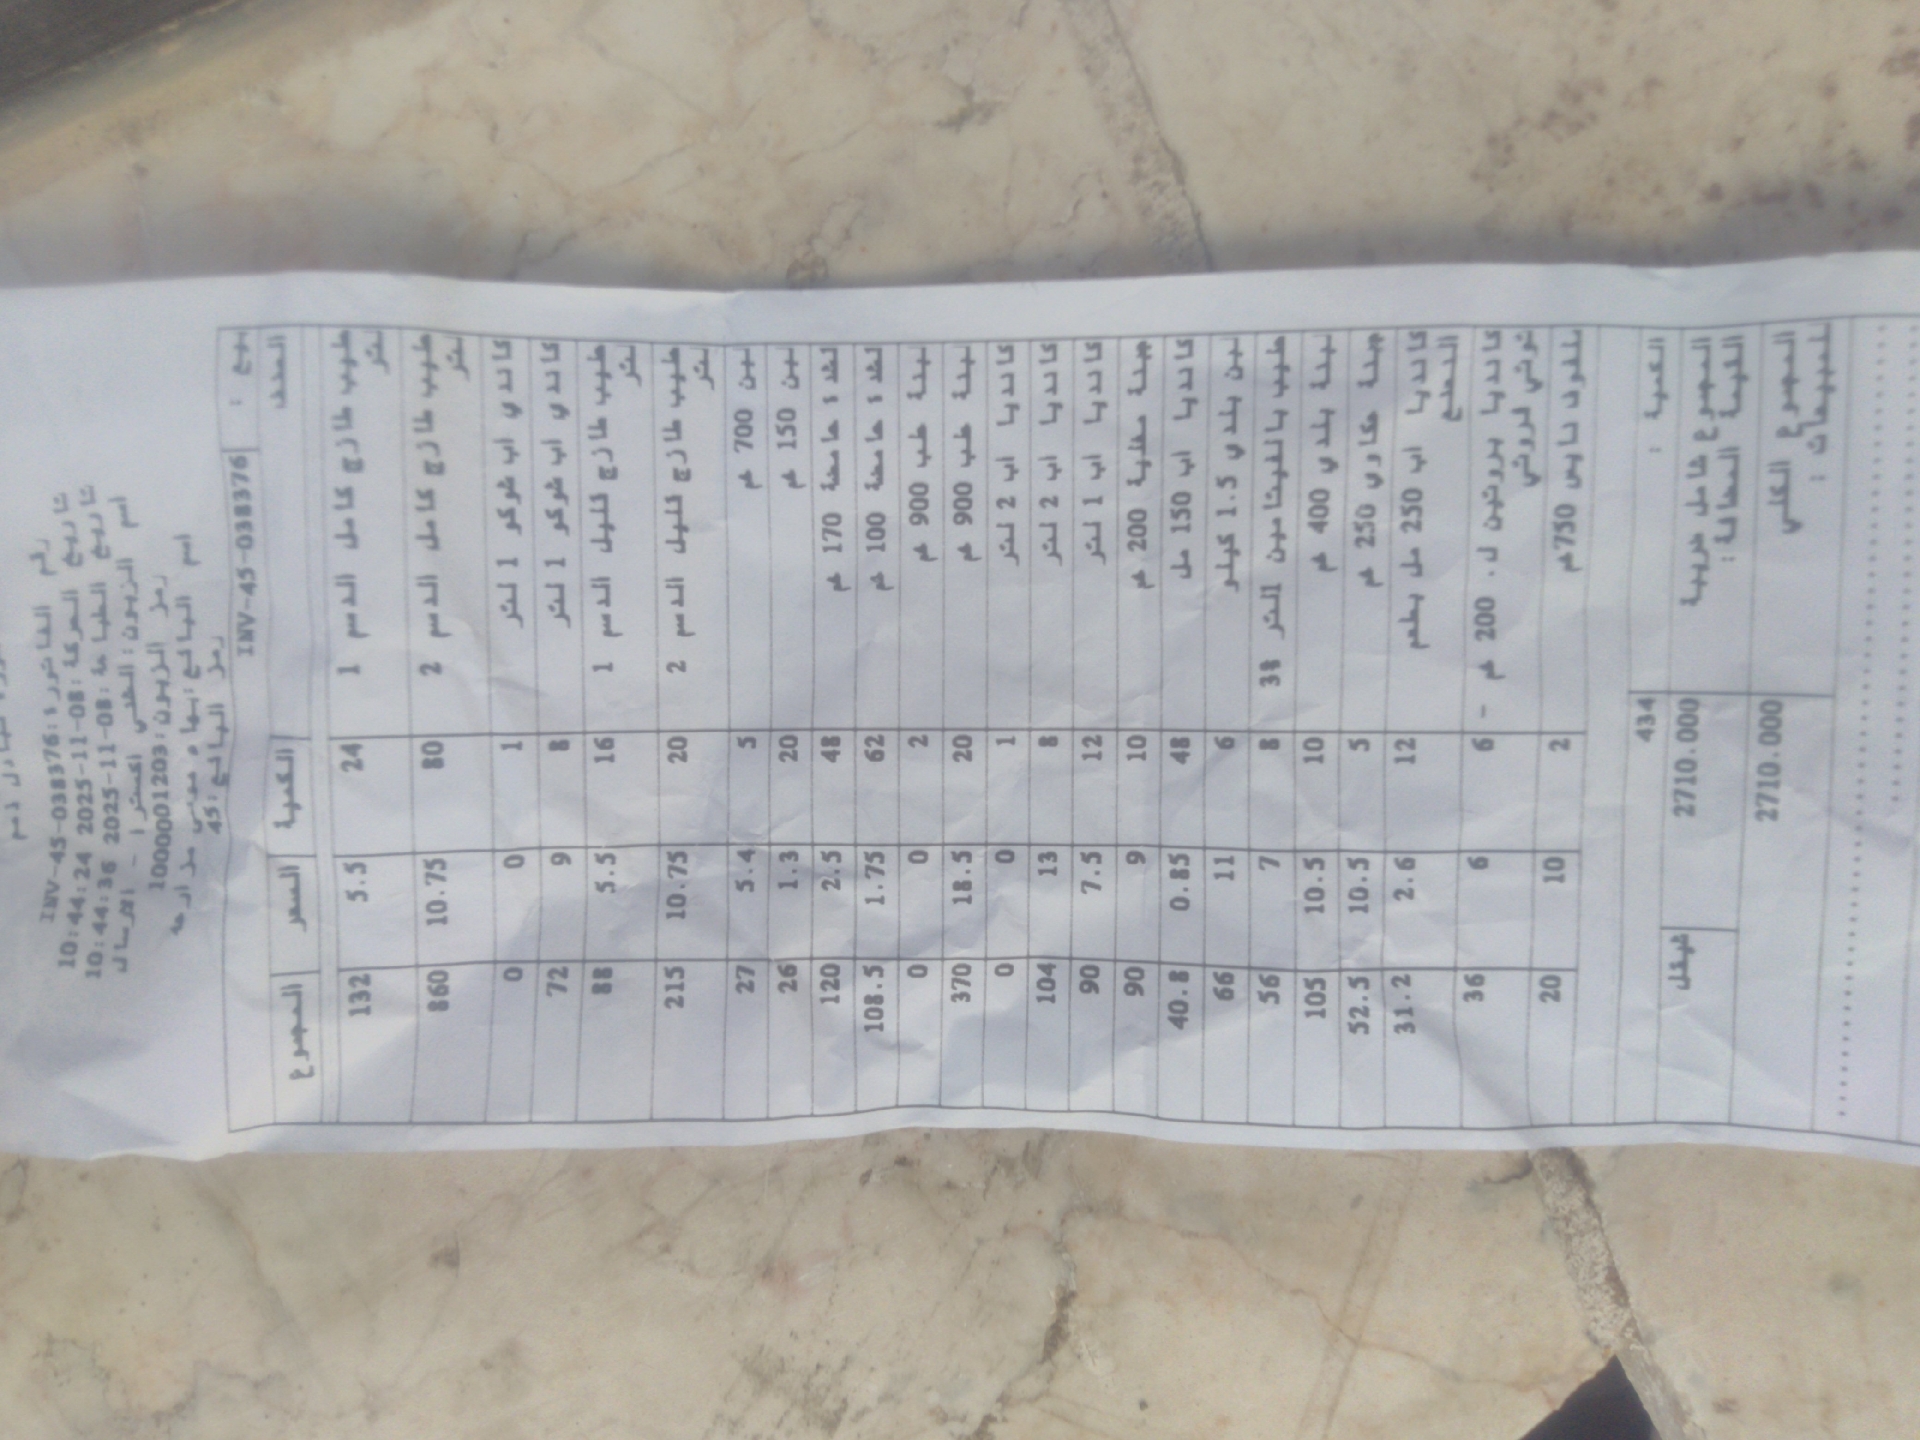 رقم الفاتورة:INV-45-038376
تاريخ الحركة:08-11-2025 10:44:24
تاريخ الطباعة:08-11-2025 10:44:36
اسم الزبون: - الارسال
رمز الزبون:1000001203
اسم البائع:بهاء موسى
رمز البائع:45
بيع : INV-45-038376
الصنف الكمية السعر المجموع
حليب طازج كامل الدسم 1 لتر 24 5.5 132
حليب طازج كامل الدسم 2 لتر 80 10.75 860
كاندي اب شوكو 1 لتر 1 0 0
كاندي اب شوكو 1 لتر 8 9 72
حليب طازج قليل الدسم 1 لتر 16 5.5 88
حليب طازج قليل الدسم 2 لتر 20 10.75 215
لبن 700 غم 5 5.4 27
لبن 150 غم 20 1.3 26
قشدة حامضة 170 غم 48 2.5 120
قشدة حامضة 100 غم 62 1.75 108.5
لبنة علب 900 غم 2 0 0
لبنة علب 900 غم 20 18.5 370
كانديا اب 2 لتر 1 0 0
كانديا اب 2 لتر 8 13 104
كانديا اب 1 لتر 12 7.5 90
جبنة مغلية 200 غم 10 9 90
كانديا اب 150 مل 48 0.85 40.8
لبن بلدي 1.5 كيلو 6 11 66
حليب بالفيتامين 3% التر 8 7 56
لبنة بلدي 400 غم 10 10.5 105
جبنة عكاوي 250 غم 5 10.5 52.5
كانديا اب 250 مل بطعم 12 2.6 31.2
كانديا بروتين ل. 200 غم - توتي فروتي 6 6 36
نايس 750غم 2 10 20
الكمية : 434
المجموع شامل ضريبة القيمة المضافة: 2710.000 شيكل
المجموع الكلي للمبيعات : 2710.000